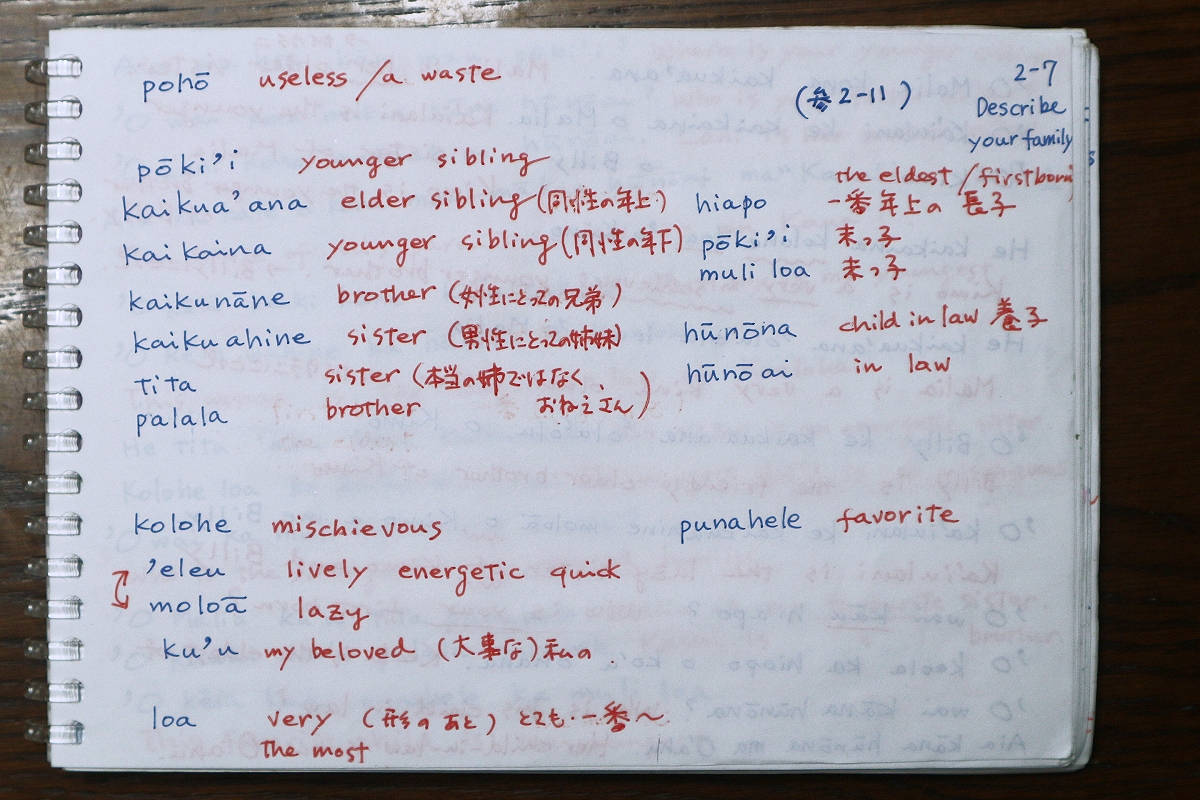 pohō useless / a waste
(参2-11)
2-7
Describe
your family
pōki'i younger sibling
kaikua'ana elder sibling (同性の年上)
kaikaina younger sibling (同性の年下)
kaikunāne brother (女性にとっての兄弟)
kaikuahine sister (男性にとっての姉妹)
tita sister (本当の姉ではなく、
palala brother おねえさん)
the eldest / firstborn
hiapo 一番年上の 長子
pōki'i 末っ子
muli loa 末っ子
hūnōna child in law 養子
hūnōai in law
kolohe mischievous
punahele favorite
'eleu lively energetic quick
moloā lazy
ku'u my beloved (大事な)私の.
loa very (形のあと) とても・一番〜
The most